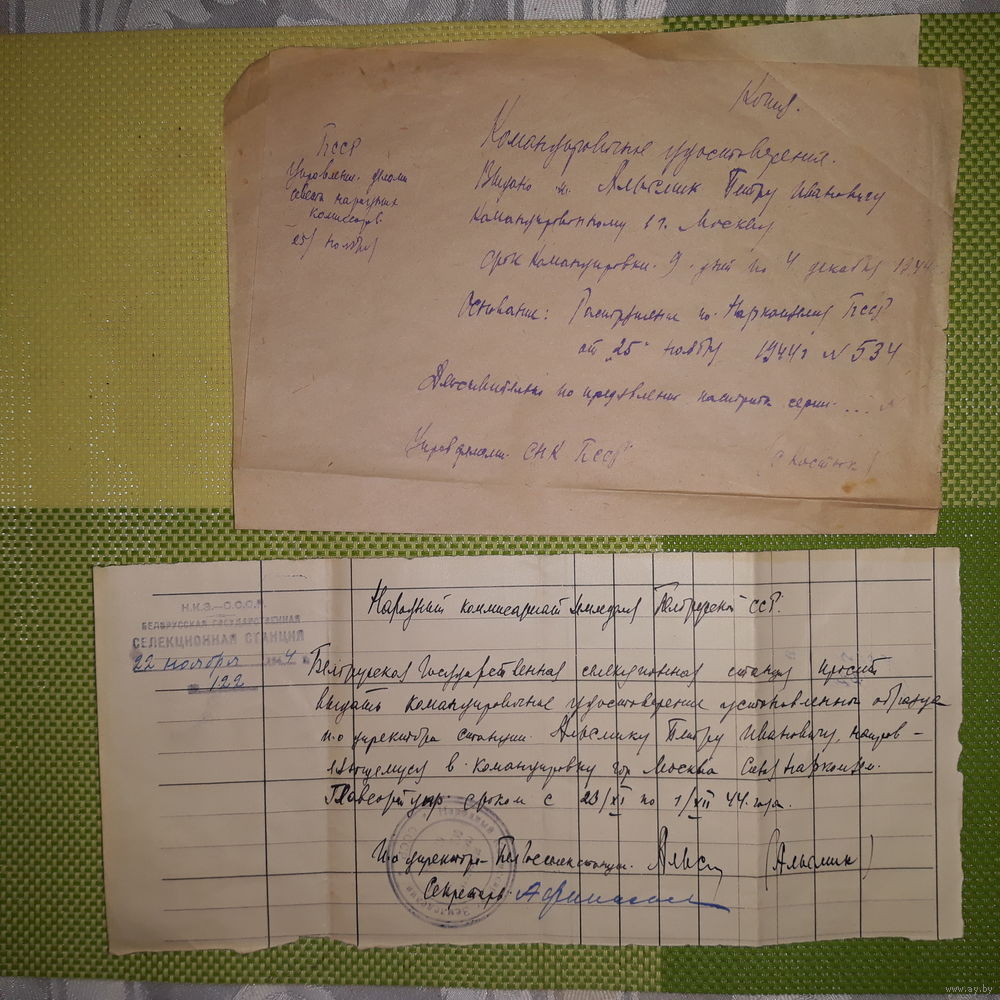 Копия.
Командировочное удостоверение.
БССР
Управлен. делами
совета народных
комиссаров
25/ ноября
Выдано т. Альсмик Петру Ивановичу
командированному в г. Москву
Срок командировки 9 дней по 4 декабря 1944
Основание: Наркомзема БССР
от "25" ноября 1944 г N 534
Действительно по предъявлении паспорта серии ... N
Управделами СНК БССР
(Костюк)
Н.К.З.—С.С.С.Р.
БЕЛОРУССКАЯ ГОСУДАРСТВЕННАЯ
СЕЛЕКЦИОННАЯ СТАНЦИЯ
22 ноября 1944 г.
№ 122
Народный комиссариат Земледелия Белорусской ССР.
Белорусская Государственная селекционная станция просит
выдать командировочное удостоверение установленного образца
и.о директора станции Альсмику Петру Ивановичу, направ-
ляющемуся в командировку гор Москва Наркомзем.
сроком с 23/XI по 1/XII 44 года.
И.о директора Белгосселекстанции (Альсмик)
Секретарь
www.ay.by